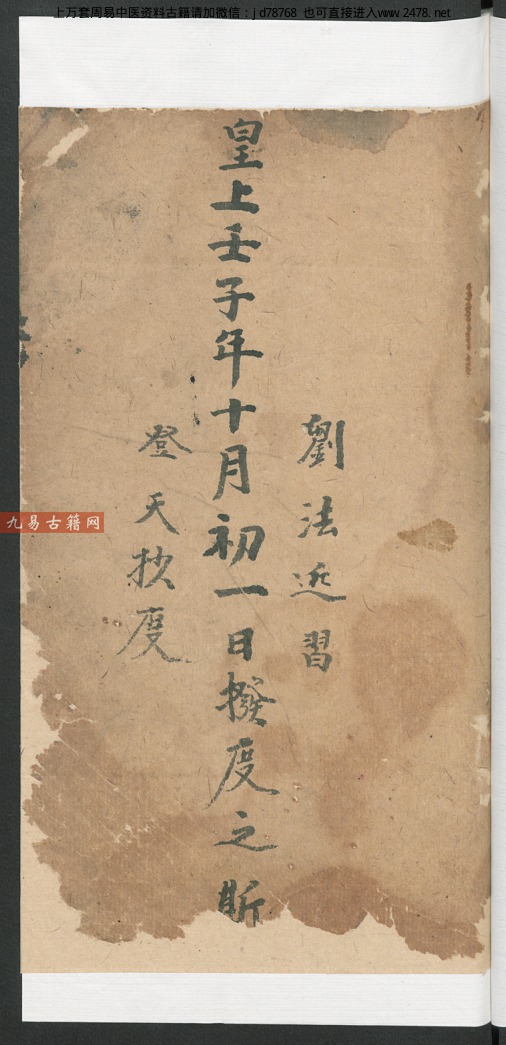 上万套周易中医资料古籍请加微信：jd78768 也可直接进入www.2478.net
劉法近習
皇上壬子年十月初一日撥度之
登天抄度
九易古籍网